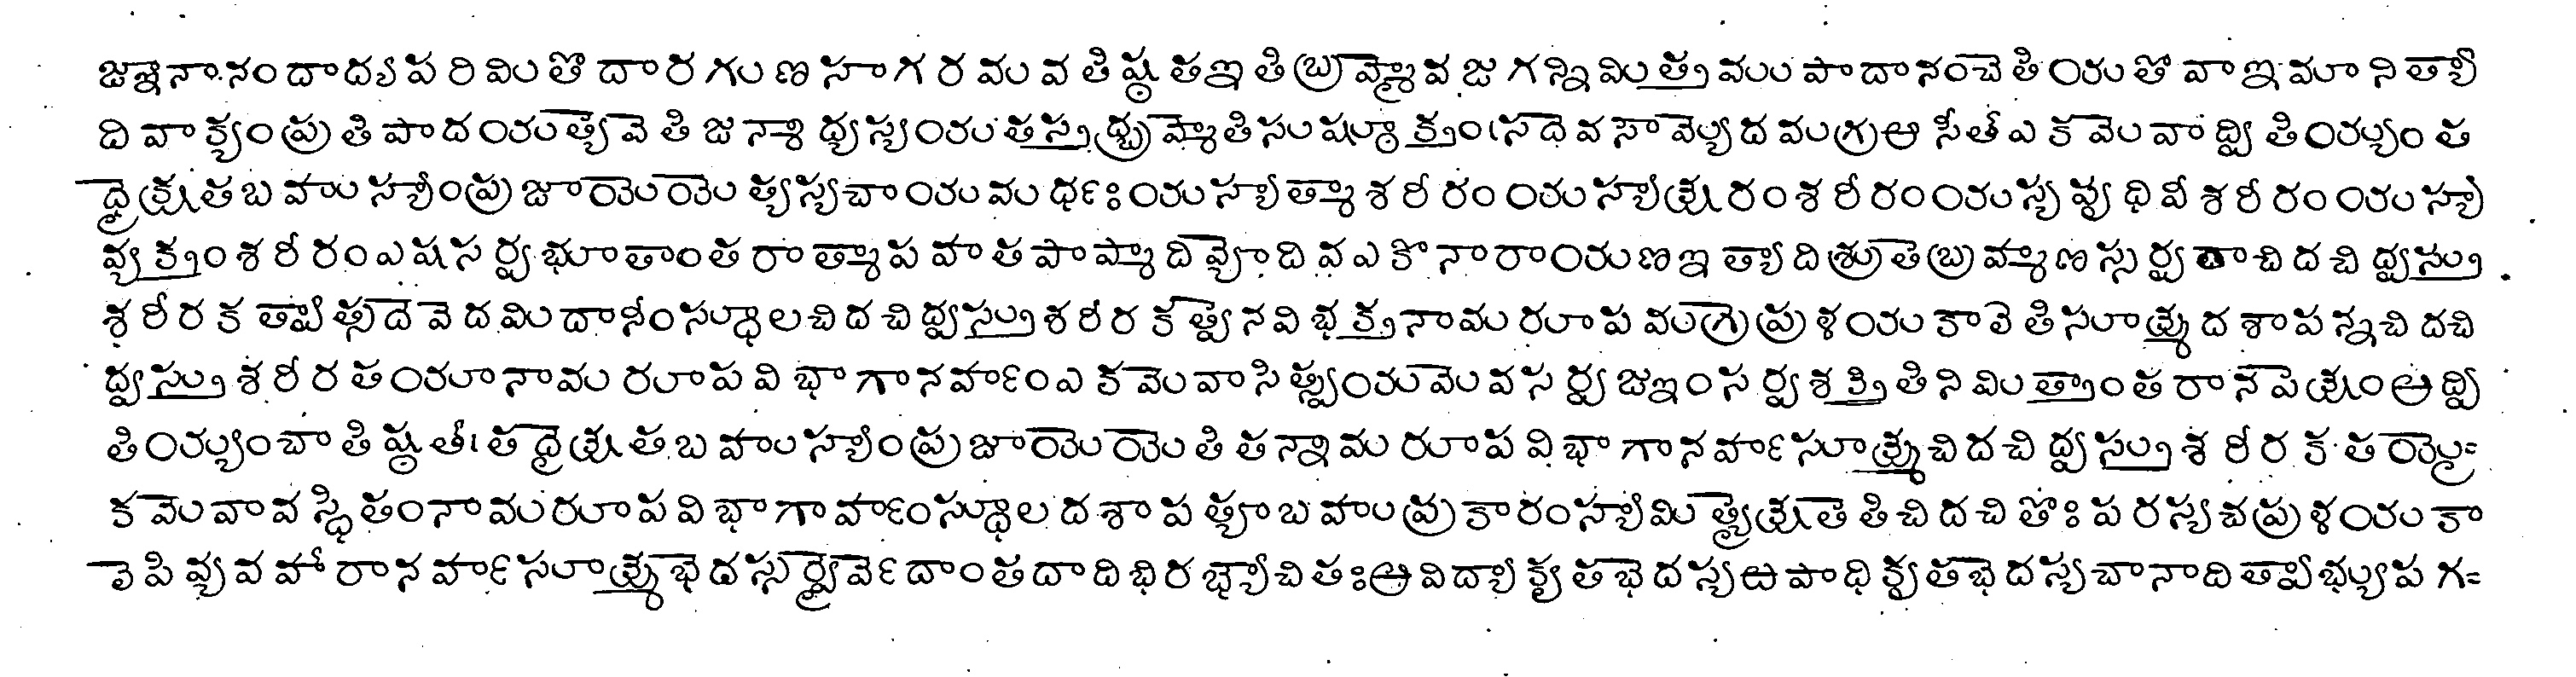 జ్ఞానానందాద్యపరిమితొదారగుణసాగరమవతిష్ఠతఇతిబ్రహ్మైవజగన్నిమిత్తముపాదానంచెతియతోవాఇమానిత్యా
దివాక్యంప్రతిపాదయత్యేవెతిజన్మాధ్యస్యయతస్తద్బ్రహ్మెతిసుషఠ్యూక్తం।సదెవసొవెల్యదమగ్రఆసీతేఎకమెవాద్వితియ్యంత
ద్ధైక్షతబహుస్యాంప్రజాయెయెత్యస్యచాయమర్ధఃయస్యాత్మాశరీరంయస్యాక్షరంశరీరంయస్యపృధివీశరీరంయస్యా
వ్యక్తంశరీరంఎషసర్వభూతాంతరాత్మాపహతపాప్మాదివ్యొదివఎకొనారాయణఇత్యాదిశ్రుతెబ్రహ్మణస్సర్వతాచిదచిద్వస్తు
శరీరకత్వాత్సదెవెదమిదానీంస్థులచిదచిద్వస్తుశరీరకత్వెనవిభక్తనామరూపమగ్రెప్రళయకాలెతిసూక్ష్మదశాపన్నచిదచి
ద్వస్తుశరీరతయానామరూపవిభాగానర్హంఎకమెవాసిత్స్వయమెవసర్వజ్ఞంసర్వశక్తితినిమిత్తాంతరానపెక్షంఆద్వి
తియ్యంచాతిష్ఠతీ।తద్ధైక్షతబహుస్యాంప్రజాయెయెతితన్నామరూపవిభాగానర్హసూక్ష్మచిదచిద్వస్తుశరీరకతయై
కమెవావస్ధితంనామరూపవిభాగార్హంస్థులదశాపత్యాబహుప్రకారంస్యామిత్యైక్షతెతిచిదచితొఃపరస్యచప్రళయకా
లెపివ్యవహారానర్హసూక్ష్మభెదస్సర్వైర్వెదాంతదాదిభిరభ్యొచితఃఆవిద్యాకృతభెదస్యఉపాధికృతభెదస్యచానాదిత్వాభ్యుపగ=